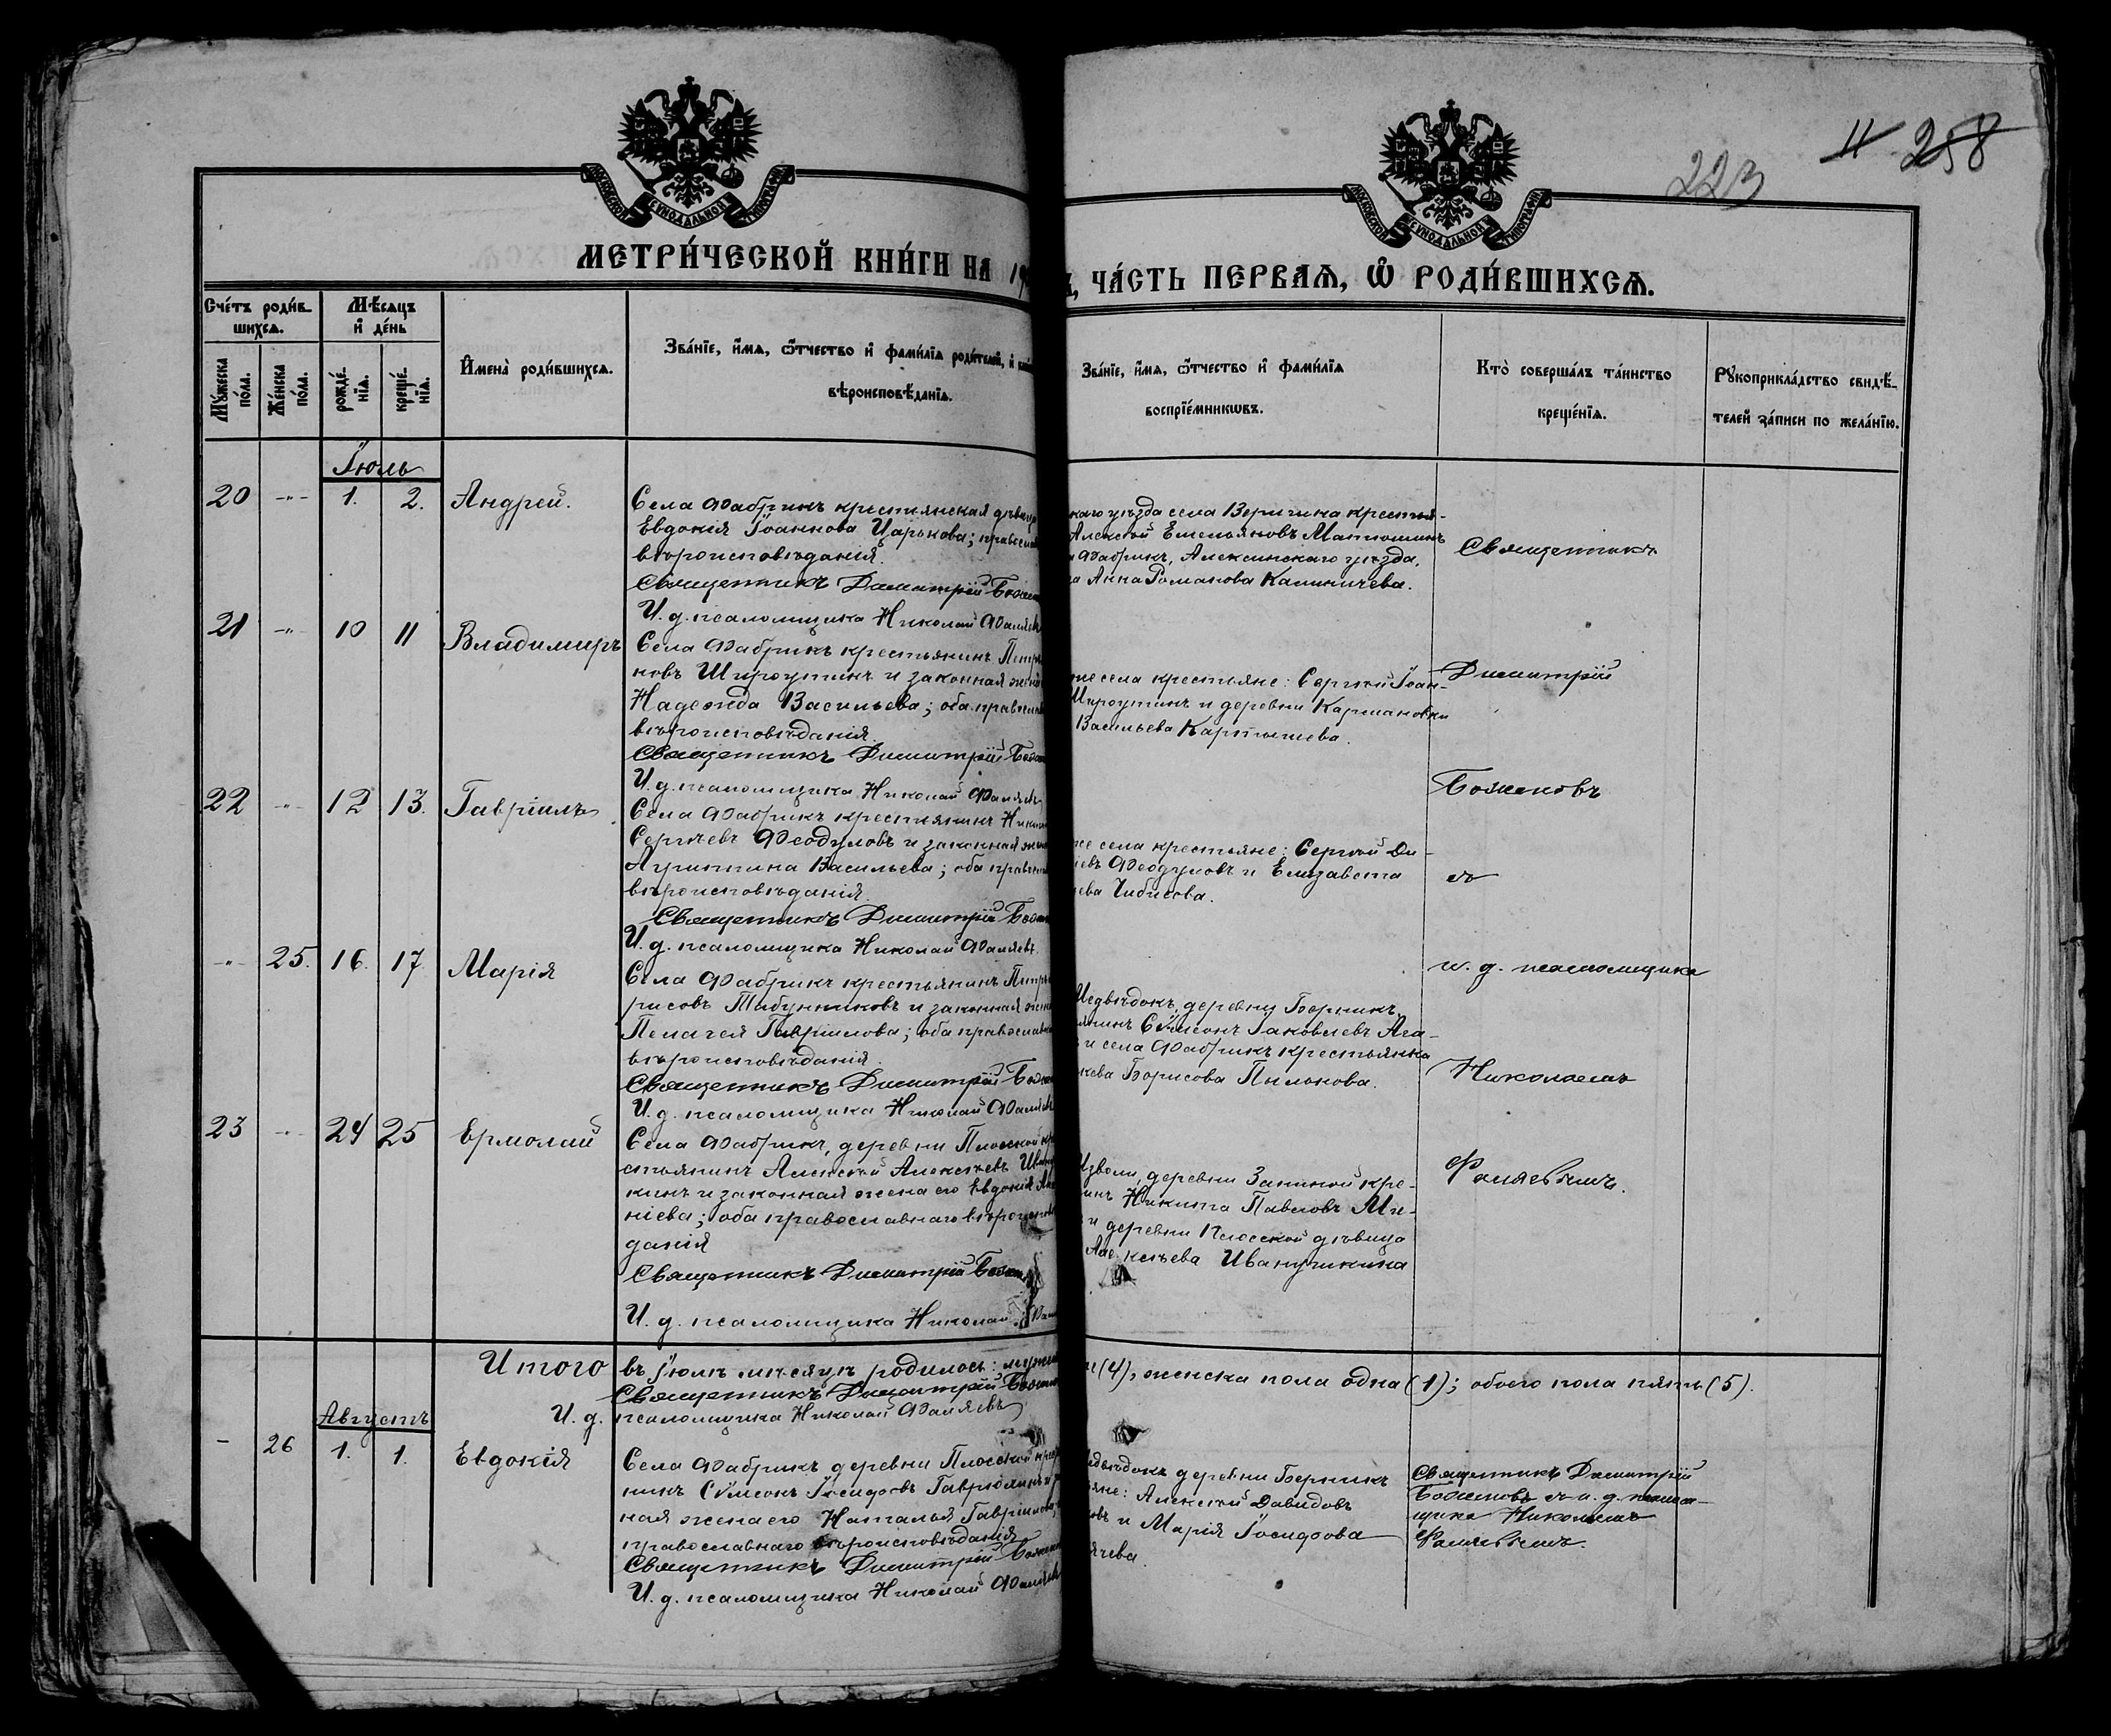 11 258
223
МОСКОВСКОЙ СѴНОДАЛЬНОЙ ТИПОГРАФІИ
МОСКОВСКОЙ СѴНОДАЛЬНОЙ ТИПОГРАФІИ
МЕТРИ́ЧЕСКОЙ КНИ́ГИ НА 19
, ЧА́СТЬ ПЕРВАѦ, Ѽ РОДИ́ВШИХСѦ.
Сче́тъ роди́в-
шихсѧ.
Мѣ́сѧцъ
и҆ де́нь
Мꙋ́жеска
по́ла.
Же́нска
по́ла.
рожде́-
нїѧ.
креще́-
нїѧ.
И҆мена̀ роди́вшихсѧ.
Зва́нїе, и҆́мѧ, ѻ҆́тчество и҆ фами́лїѧ роди́телей, и҆
вѣроисповѣ́данїѧ.
Зва́нїе, и҆́мѧ, ѻ҆́тчество и҆ фами́лїѧ
воспрїе́мникѡвъ.
Кто̀ соверша́лъ та́инство
креще́нїѧ.
Рꙋкоприкла́дство свидѣ́-
телей за́писи по жела́нїю.
Іюль
20 -"- 1. 2. Андрей.
Села Фабрикъ крестьянская дѣвица
Евдокія Іоаннова Царькова; правосла
вѣроисповѣданія.
Священникъ Димитрій Божен
И. д. псаломщика Николай Фаляев
каго уѣзда села Веригина крестья-
Алексѣй Емельяновъ Матюшинъ
Фабрик, Алексинскаго уѣзда,
Анна Романова Калиничева.
Священникъ
21 -"- 10 11 Владимиръ
Села Фабрикъ крестьянинъ Петръ
новъ Широутинъ и законная жен
Надежда Васильева; оба правосла
вѣроисповѣданія.
Священникъ Димитрій Божен
И. д. псаломщика Николай Фаляев
же села крестьяне: Сергѣй Іоан-
Широутинъ и деревни Кармановки
Васильева Картышева.
Димитрій
22 -"- 12 13. Гавріилъ
Села Фабрикъ крестьянинъ Ники
Сергѣевъ Феодуловъ и законная жен
Агриппина Васильева; оба правосл
вѣроисповѣданія.
Священникъ Димитрій Божен
И. д. псаломщика Николай Фаляевъ.
же села крестьяне: Сергѣй Ди-
іевъ Феодуловъ и Елизавета
ева Чибисова.
Боженовъ
съ
-"- 25. 16. 17. Марія
Села Фабрикъ крестьянинъ Петръ
рисовъ Табунниковъ и законная жен
Пелагея Гавріилова; оба православ
вѣроисповѣданія.
Священникъ Димитрій Божен
И. д. псаломщика Николай Фаляев
Медвѣдокъ, деревни Берникъ
янинъ Сѵмеонъ Іаковлевъ Ага-
и села Фабрикъ крестьянка
Борисова Пилюкова.
и. д. псаломщика
Николаемъ
23 -"- 24 25 Ермолай
Села Фабрикъ, деревни Плоской кре
стьянинъ Алексѣй Алексѣевъ Иван
кинъ и законная жена его Евдокія
ніева; оба православнаго вѣроисповѣ
данія
Священникъ Димитрій Божен
И. д. псаломщика Николай Фаля
Изволи, деревни Заниной кре-
инъ Никита Павловъ Ми-
и деревни Плоской дѣвица
Алексѣева Иванушкина
Фаляевымъ.
Итого въ Іюлѣ мѣсяцѣ родилось: мужеск
(4), женска пола одна (1); обоего пола пять (5).
Священникъ Димитрій Божен
И. д. псаломщика Николай Фаляевъ
Августъ
- 26 1. 1. Евдокія
Села Фабрикъ деревни Плоской крес
нинъ Сѵмеонъ Іосифовъ Гаврюшинъ и
ная жена его Наталья Гавріилова;
православнаго вѣроисповѣданія
Священникъ Димитрій Божен
И. д. псаломщика Николай Фаляев
едвѣдокъ деревни Берникъ
яне: Алексѣй Давидовъ
овъ и Марія Іосифова
ячева.
Священникъ Димитрій
Боженовъ съ и. д. псалом-
щика Николаемъ
Фаляевымъ.